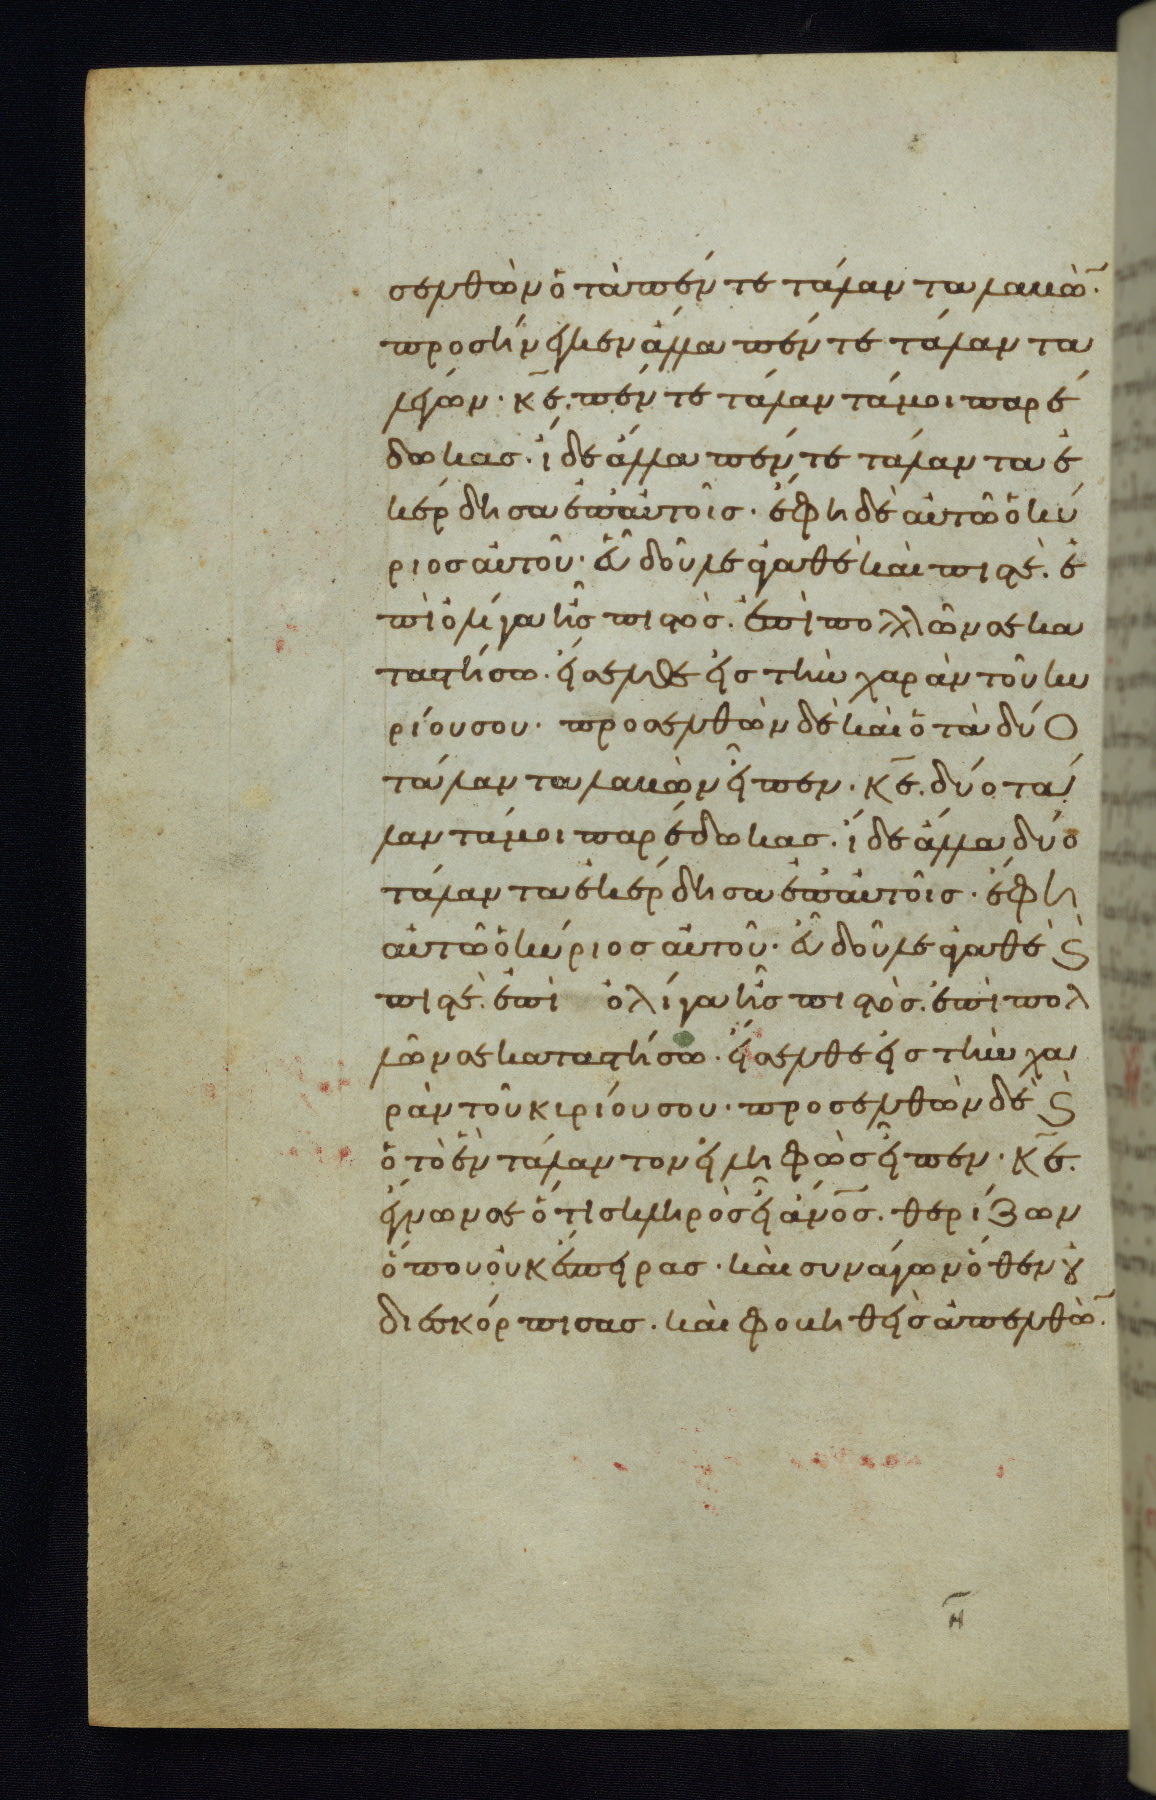 σελθὼν ὁ τὰ πέντε τάλαντα λαβὼ̅.
προσήνεγκεν ἄλλα πέντε τάλαντα
λέγων· κ̅ε̅. πέντε τάλαντά μοι παρέ
δωκας. ἴδε ἄλλα πέντε τάλαντα ἐ
κέρδησα ἐπ' αὐτοῖς. ἔφη δὲ αὐτῶ ὁ κύ
ριος αὐτοῦ· εὖ δοῦλε ἀγαθὲ καὶ πιστὲ. ἐ
πὶ ὀλίγα ἦς πιστὸς. ἐπὶ πολλῶν σε κα
ταστήσω. εἴσελθε εἰς τὴν χαρὰν τοῦ κυ
ρίου σου. προσελθὼν δὲ καὶ ὁ τὰ δύο
τάλαντα λαβὼν εἶπεν. κ̅ε̅. δύο τά
λαντά μοι παρέδωκας. ἴδε ἄλλα δύο
τάλαντα ἐκέρδησα ἐπ' αὐτοῖς. ἔφη
αὐτῶ ὁ κύριος αὐτοῦ. εὖ δοῦλε ἀγαθὲ ϗ
πιστὲ. ἐπὶ ὀλίγα ἦς πιστὸς. ἐπὶ πολ
λῶν σε καταστήσω. εἴσελθε εἰς τὴν χα
ρὰν τοῦ κιρίου σου. προσελθὼν δὲ ϗ
ὁ τὸ ἓν τάλαντον εἰληφὼς εἶπεν. κ̅ε̅.
ἔγνων σε ὅτι σκληρὸς εἶ ἄν̅ο̅ς̅. θερίζων
ὅπου οὐκ ἔσπειρας. καὶ συνάγων ὅθεν οὐ
διεσκόρπισας. καὶ φοβηθεὶς ἀπελθὼ̅.
η̅